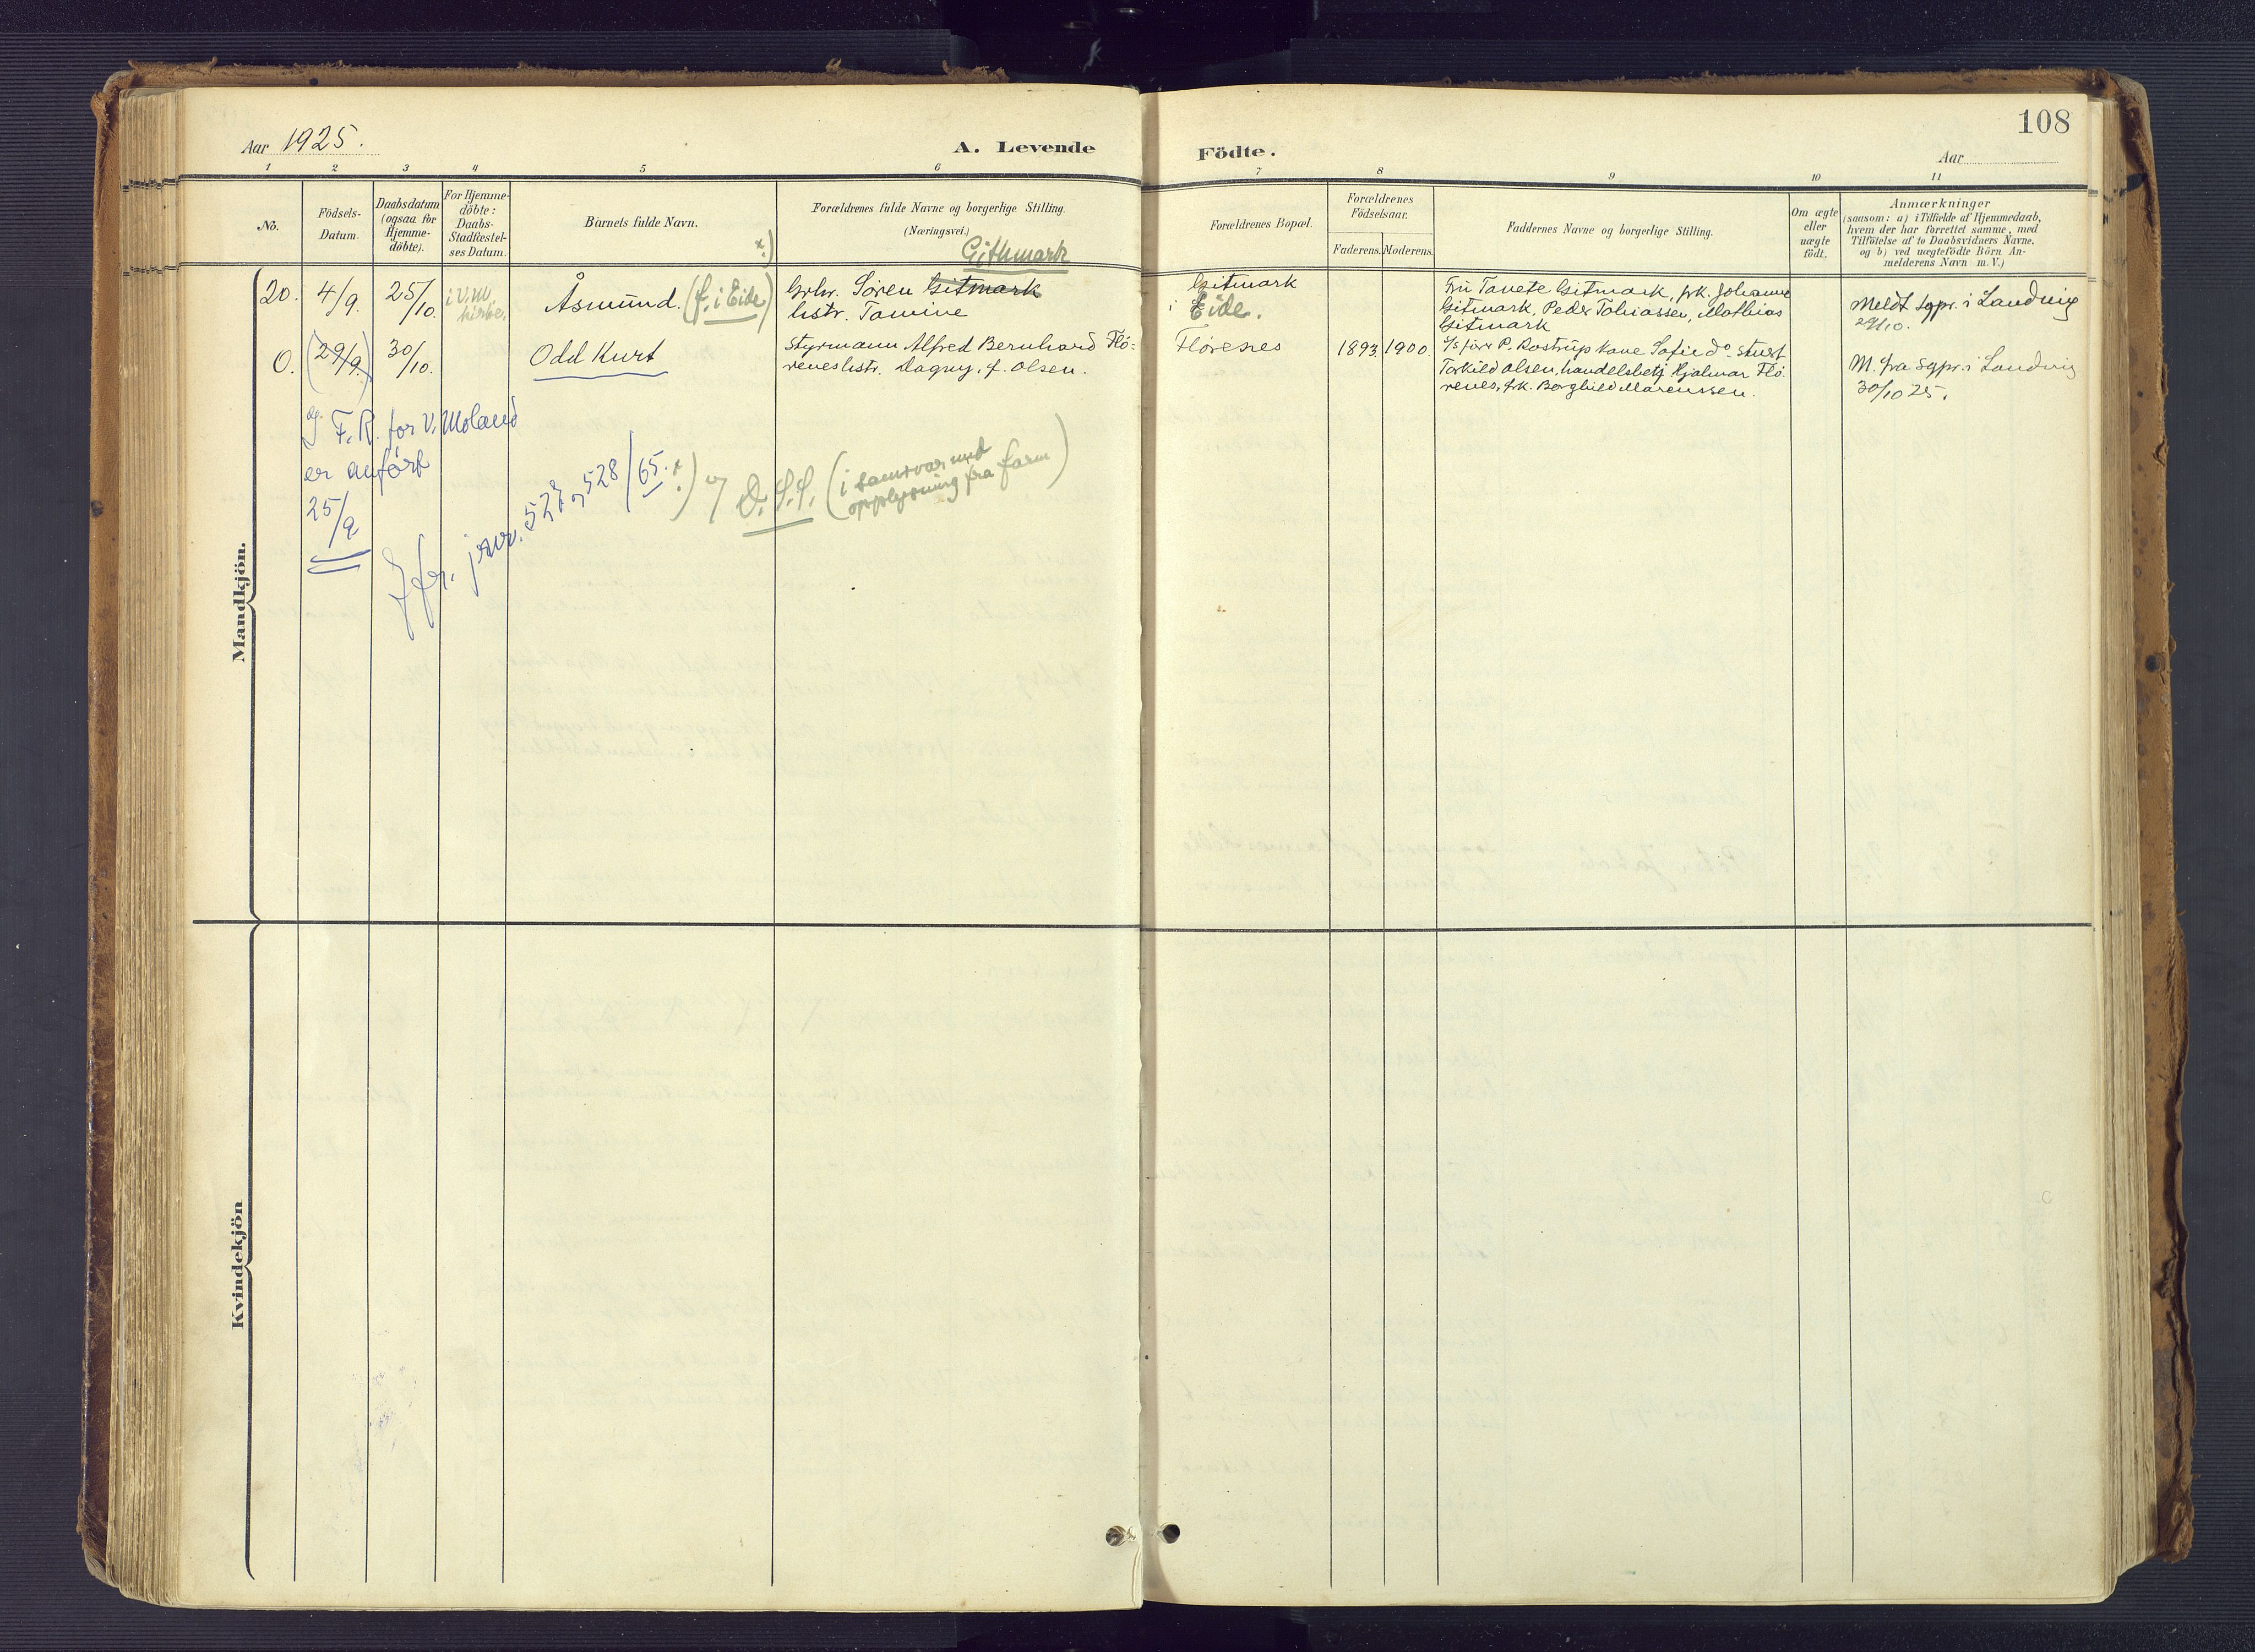 108
Aar 1925.
A. Levende
Födte.
Aar
1 2 3 4 5 6 7 8 9 10 11
No.
Födsels-
Datum.
Daabsdatum
(ogsaa for
Hjemme-
döbte).
For Hjemme-
döbte:
Daabs-
Stadfæstel-
ses Datum.
Barnets fulde Navn.
Forældrenes fulde Navne og borgerlige Stilling.
(Næringsvei.)
Forældrenes Bopæl.
Forældrenes
Födselsaar.
Faderens. Moderens.
Faddernes Navne og borgerlige Stilling.
Om ægte
eller
uægte
födt.
Anmærkninger
(saasom: a) i Tilfælde af Hjemmedaab,
hvem der har forrettet samme, med
Tilföielse af to Daabsvidners Navne,
og b) ved uægtefödte Börn An-
melderens Navn m. V.)
Mandkjön.
×) Githmark
20. 4/9. 25/10. i V.M. kirke.
Åsmund. (f. i Eide)
Grbr. Sören Gitmark
hstr. Tomine
Gitmark
i Eide.
Fru Tanete Gitmark, frk. Johanne
Gitmark, Peder Tobiassen, Mathias
Gitmark
Meldt sgpr. i Landvig
29/10.
0. (29/9) 30/10.
Odd Kurt
Styrmann Alfred Bernhard Flö-
renes hstr. Dagny, f. Olsen.
Flörenes
1893. 1900.
P. Rostrup kone Sofie do. stuert
Torkild Olsen, handelsbetj Hjalmar Flö-
renes, frk. Borghild Marenssen.
M. fra sgpr. i Landvig
30/10 25.
F. R. for V. Moland
er anført
25/9
Jfr. jnr. 527 og 528/65.
×) og D.S.S. (i samsvar med
opplysning fra farm)
Kvindekjön